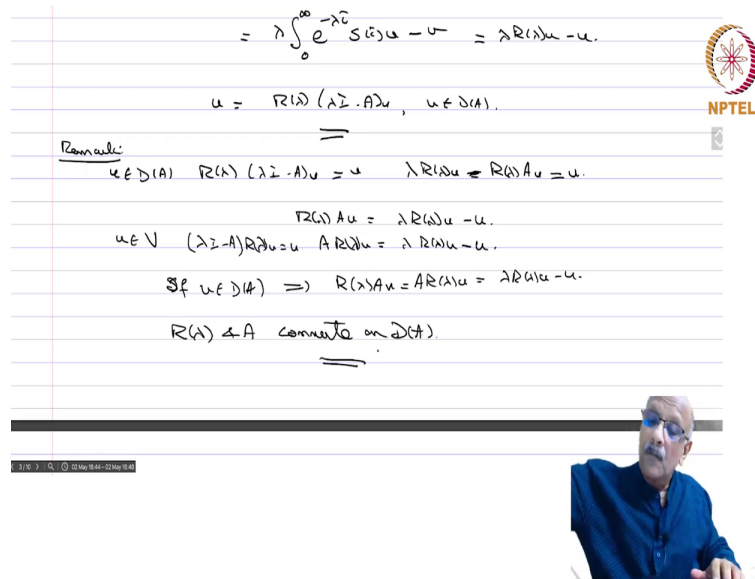 = λ∫₀^∞ e^{-λt} S(t)u - u = λR(λ)u - u.
u = R(λ)(λI-A)u, u∈D(A).
NPTEL
Remark:
u∈D(A) R(λ)(λI-A)u = u λR(λ)u - R(λ)Au = u.
R(λ)Au = λR(λ)u - u.
u∈V (λI-A)R(λ)u=u AR(λ)u = λR(λ)u - u.
If u∈D(A) => R(λ)Au = AR(λ)u = λR(λ)u - u.
R(λ) & A commute on D(A).
3/10 02 May 18:44 – 02 May 18:48